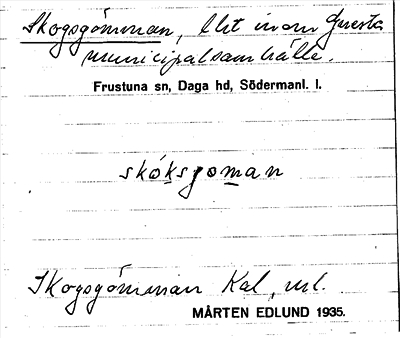 Skogsgömman, lht inom Gnesta
municipalsamhälle.
Frustuna sn, Daga hd, Södermanl. l.
skóksjoman
Skogsgömman Kal, ul.
MÅRTEN EDLUND 1935.